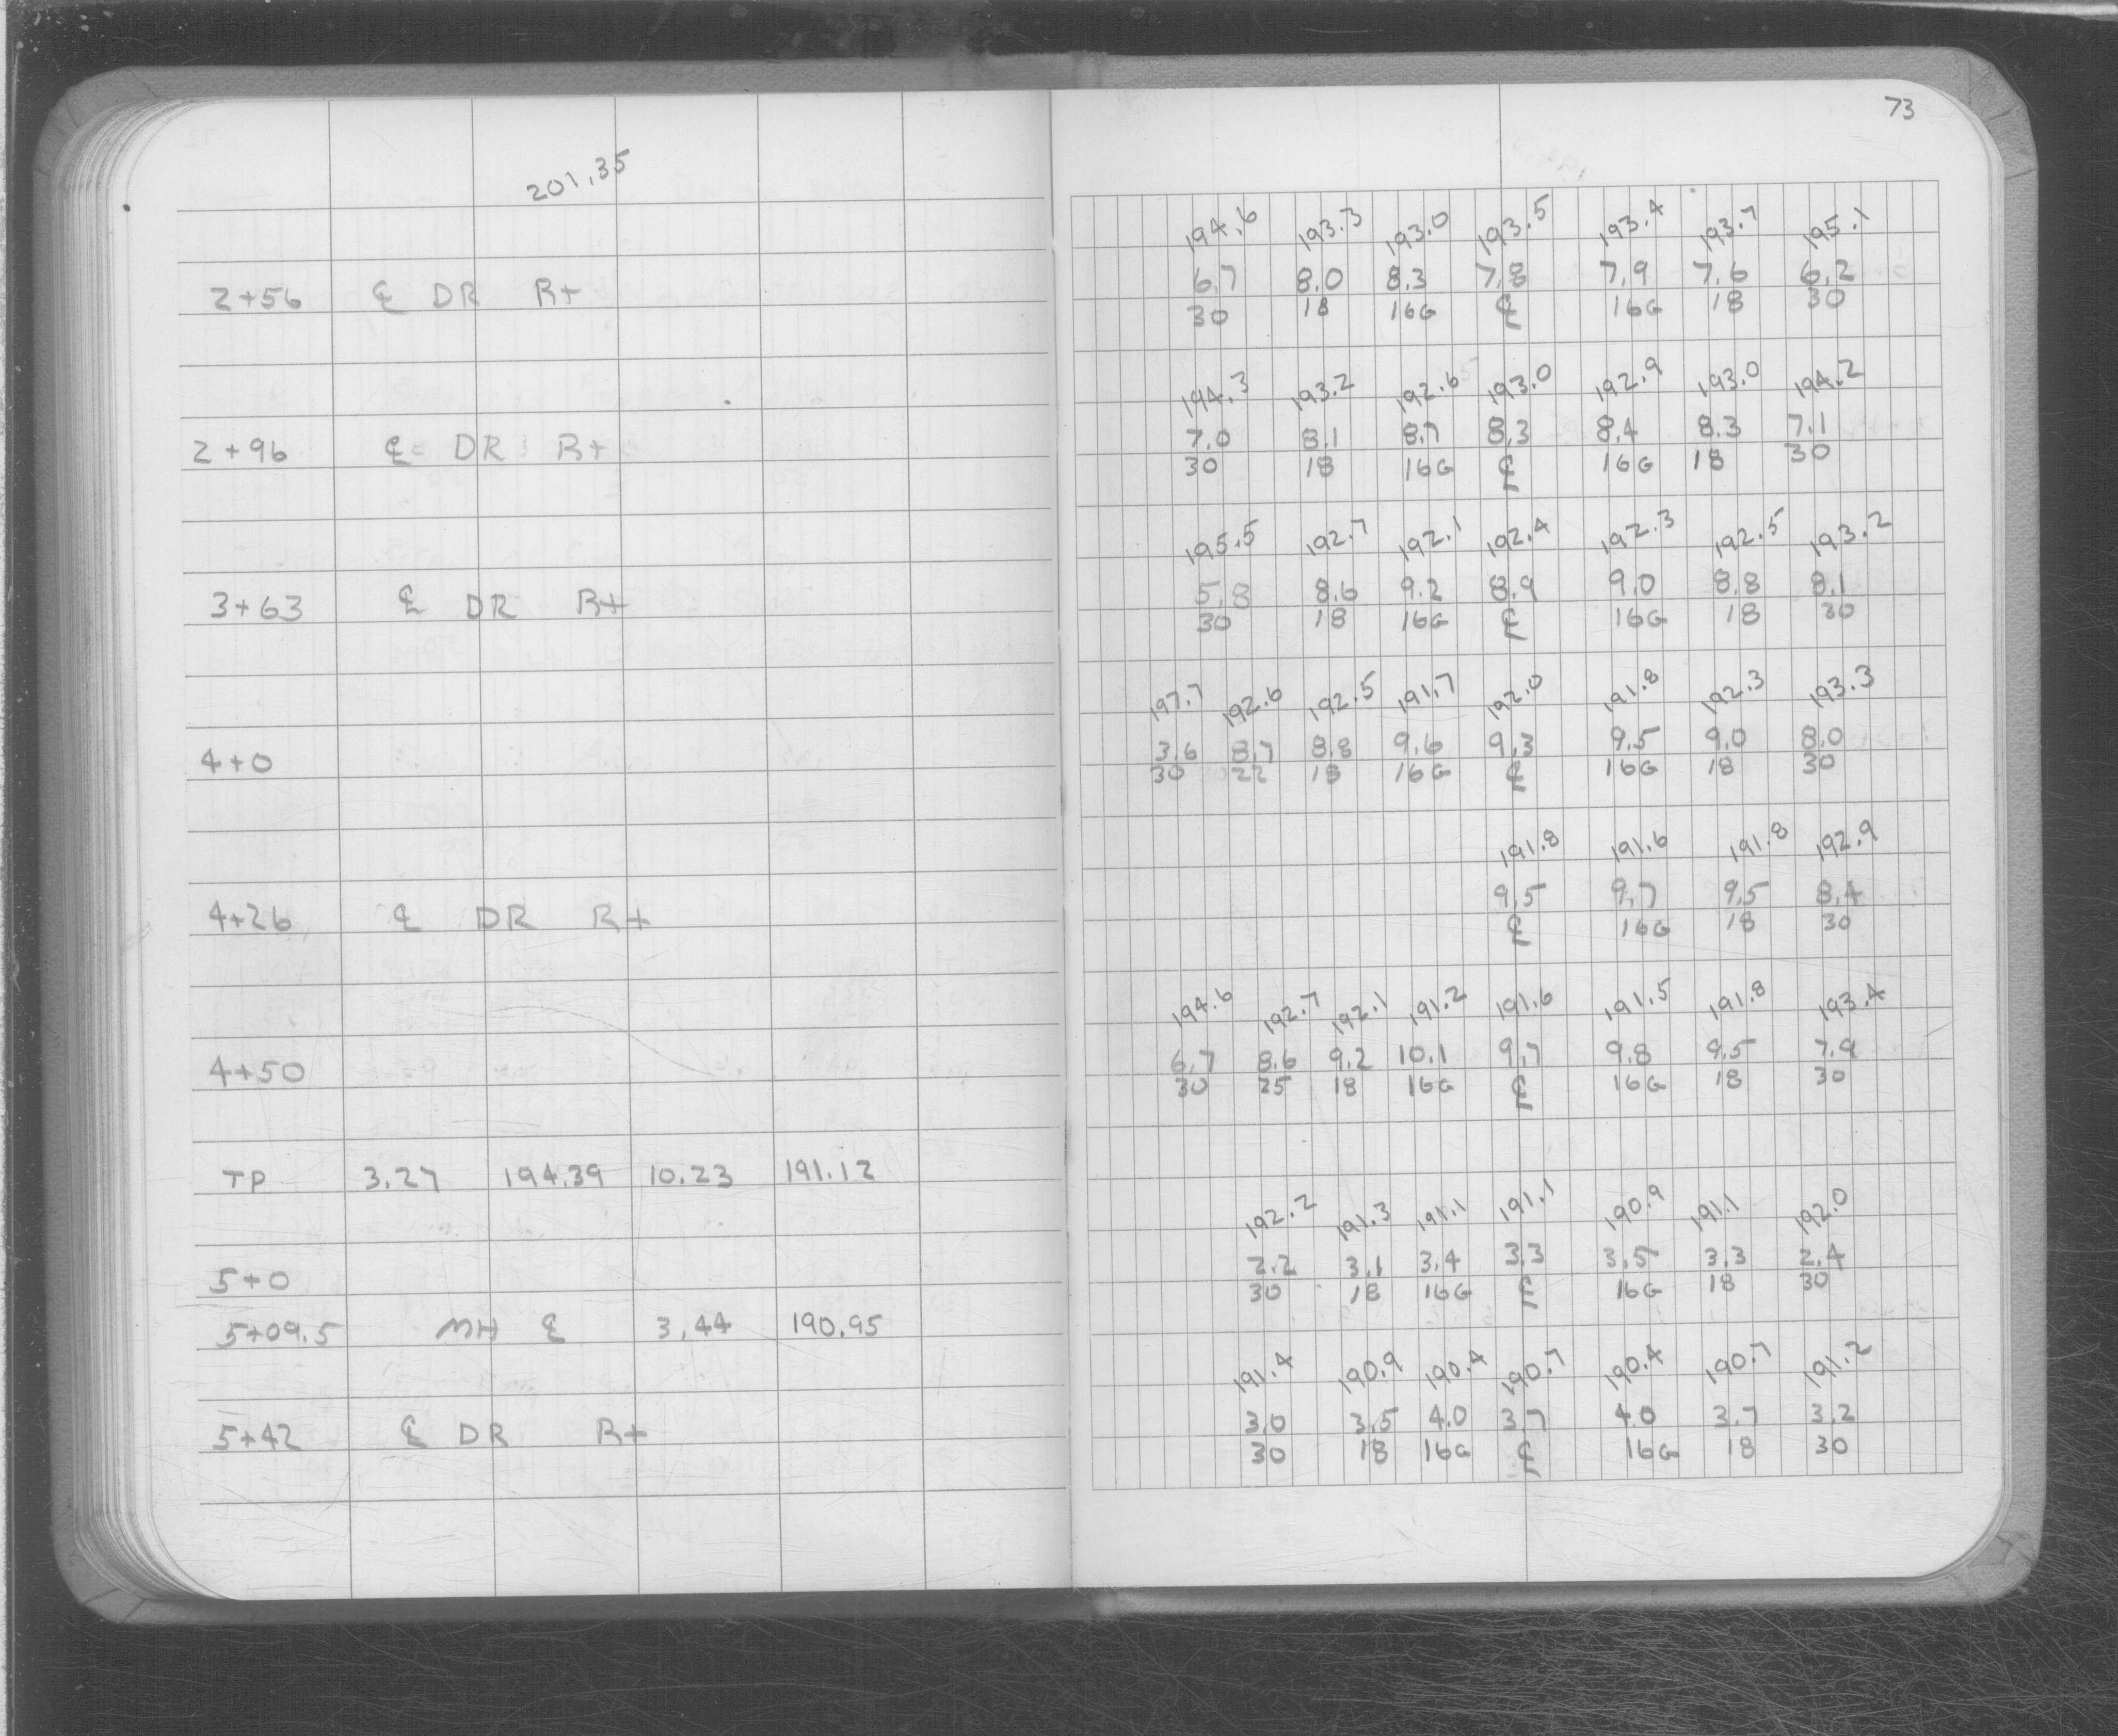 73
201.35
194.6 193.3 193.0 193.5 193.4 193.7 195.1
2+56 ℄ DR Rt 6.7 8.0 8.3 7.8 7.9 7.6 6.2
30 18 16G ℄ 16G 18 30
194.3 193.2 192.6 193.0 192.9 193.0 194.2
2+96 ℄ DR Rt 7.0 8.1 8.7 8.3 8.4 8.3 7.1
30 18 16G ℄ 16G 18 30
195.5 192.7 192.1 192.4 192.3 192.5 193.2
3+63 ℄ DR Rt 5.8 8.6 9.2 8.9 9.0 8.8 8.1
30 18 16G ℄ 16G 18 30
197.7 192.6 192.5 191.7 192.0 191.8 192.3 193.3
4+0 3.6 8.7 8.8 9.6 9.3 9.5 9.0 8.0
30 22 18 16G ℄ 16G 18 30
191.8 191.6 191.8 192.9
4+26 ℄ DR Rt 9.5 9.7 9.5 8.4
℄ 16G 18 30
194.6 192.7 192.1 191.2 191.6 191.5 191.8 193.4
4+50 6.7 8.6 9.2 10.1 9.7 9.8 9.5 7.9
30 25 18 16G ℄ 16G 18 30
TP 3.27 194.39 10.23 191.12
192.2 191.3 191.1 191.1 190.9 191.1 192.0
5+0 2.2 3.1 3.4 3.3 3.5 3.3 2.4
30 18 16G ℄ 16G 18 30
5+09.5 MH ℄ 3.44 190.95
191.4 190.9 190.4 190.7 190.4 190.7 191.2
5+42 ℄ DR Rt 3.0 3.5 4.0 3.7 4.0 3.7 3.2
30 18 16G ℄ 16G 18 30